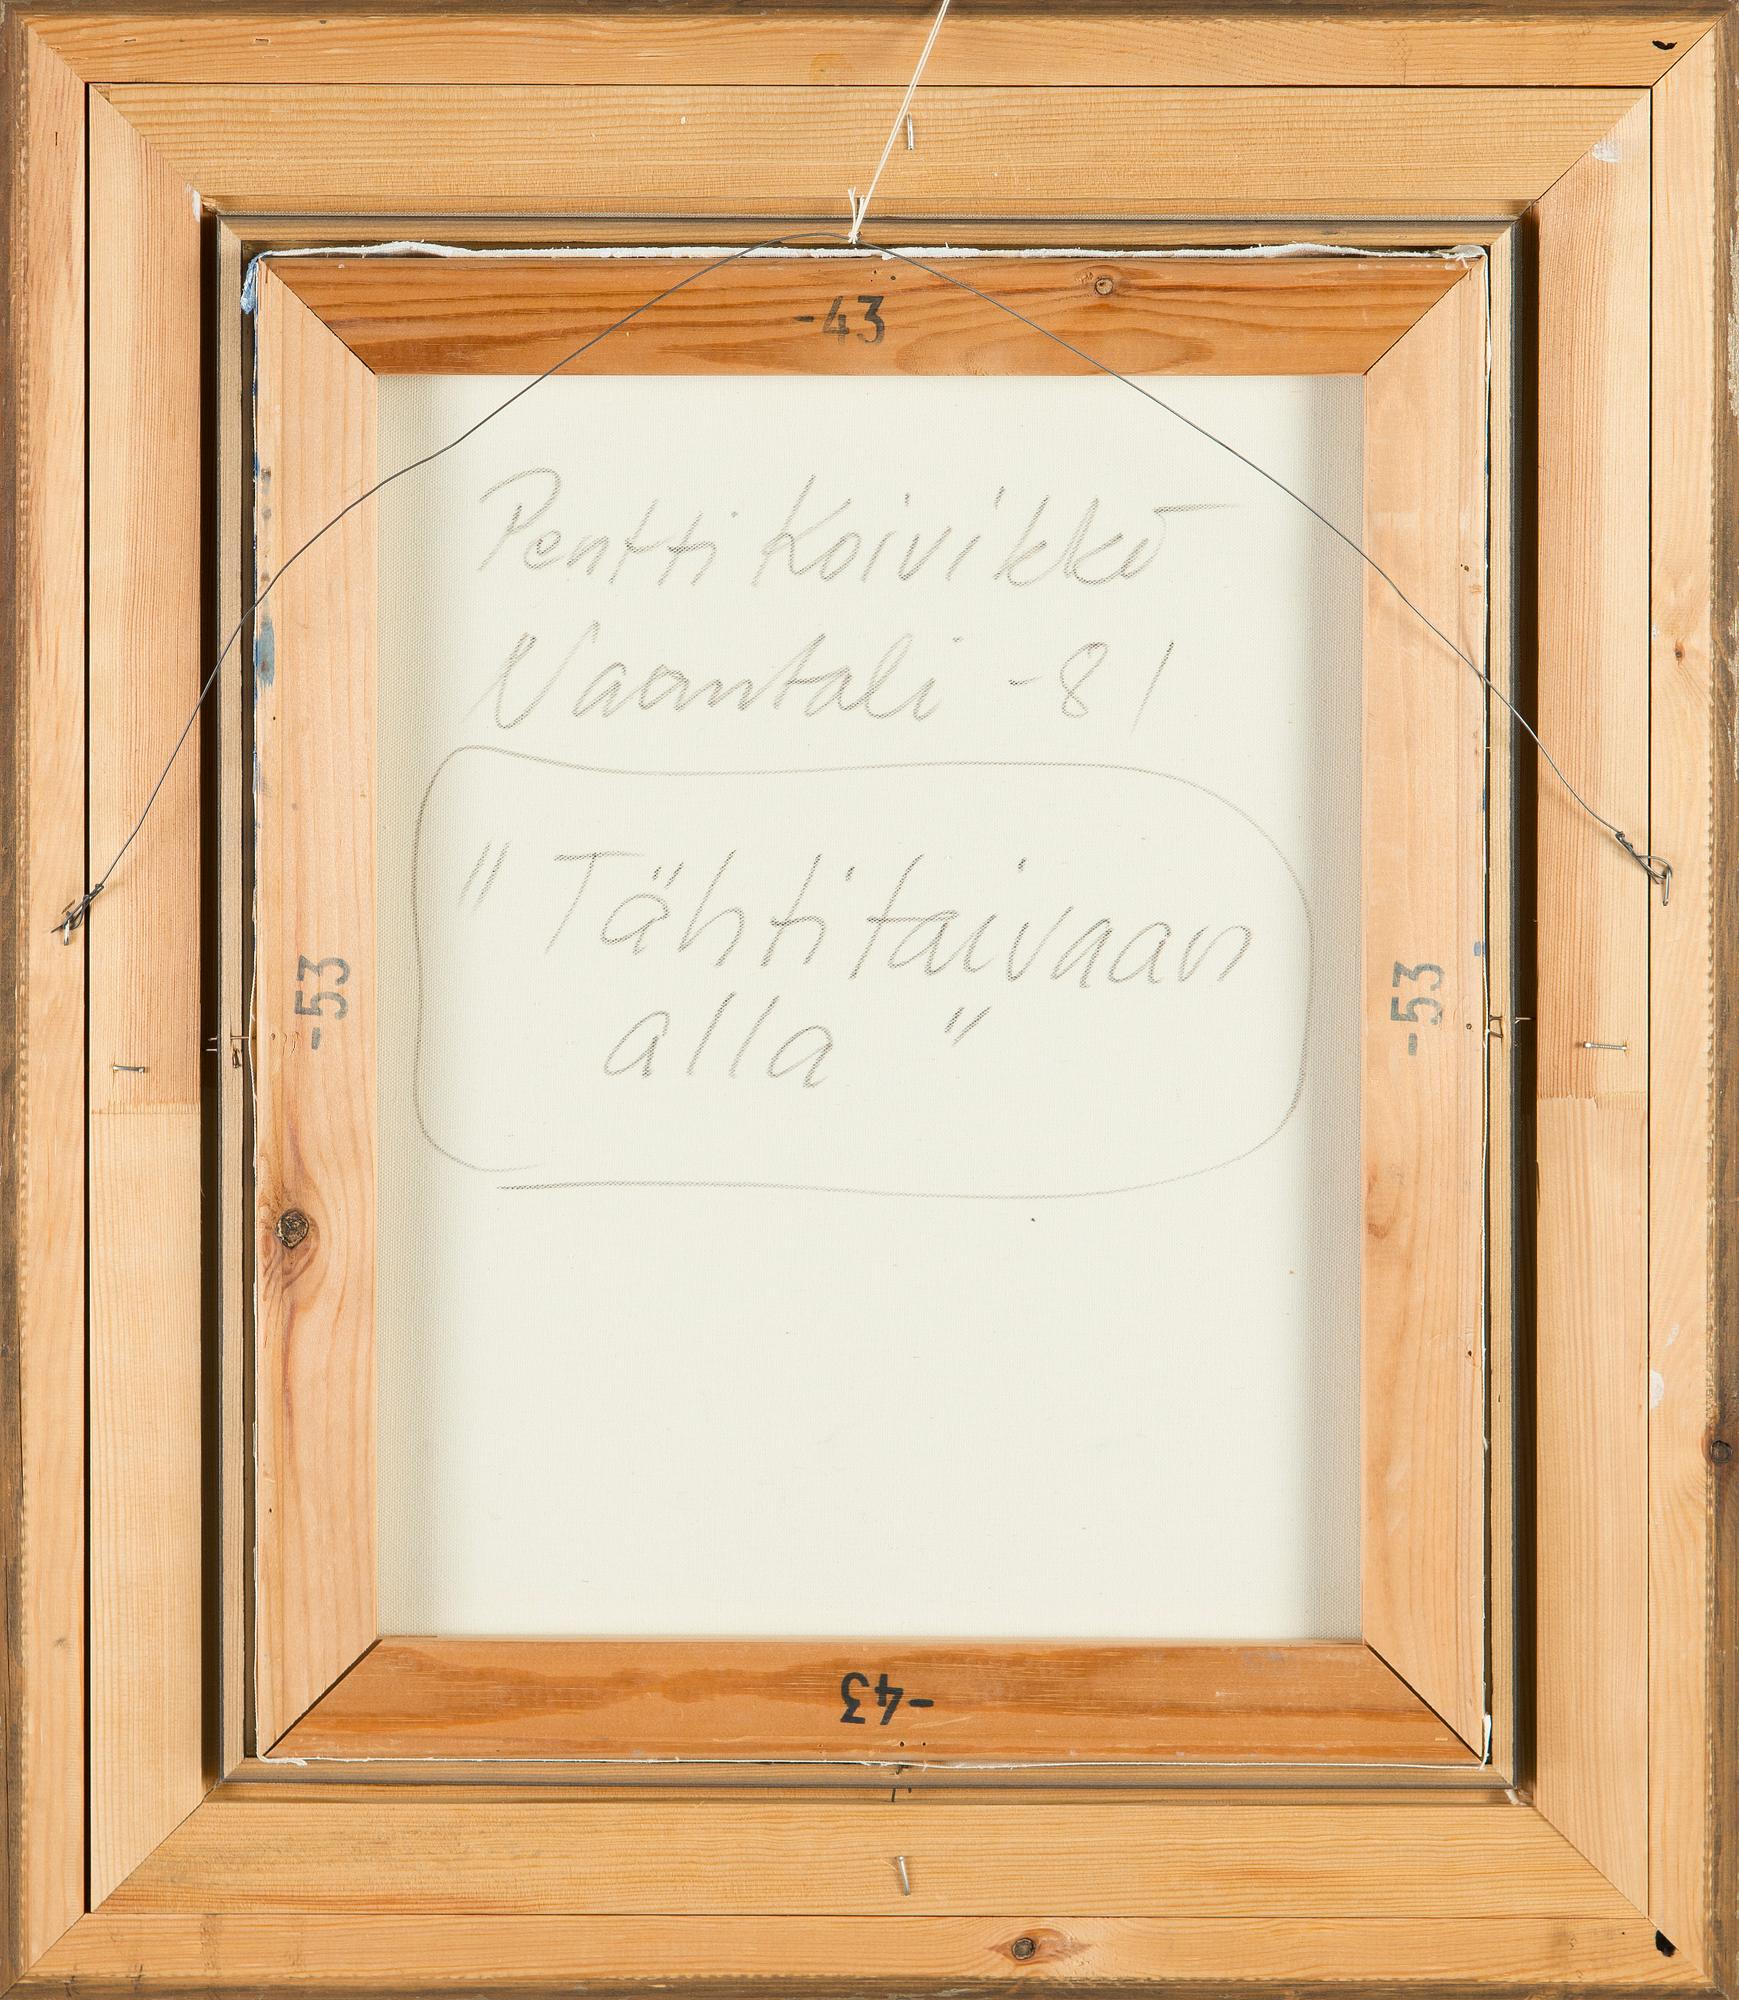 -43
Pentti Koivikko
Naantali -81
"Tähtitaivaan
alla"
-53
-53
-43